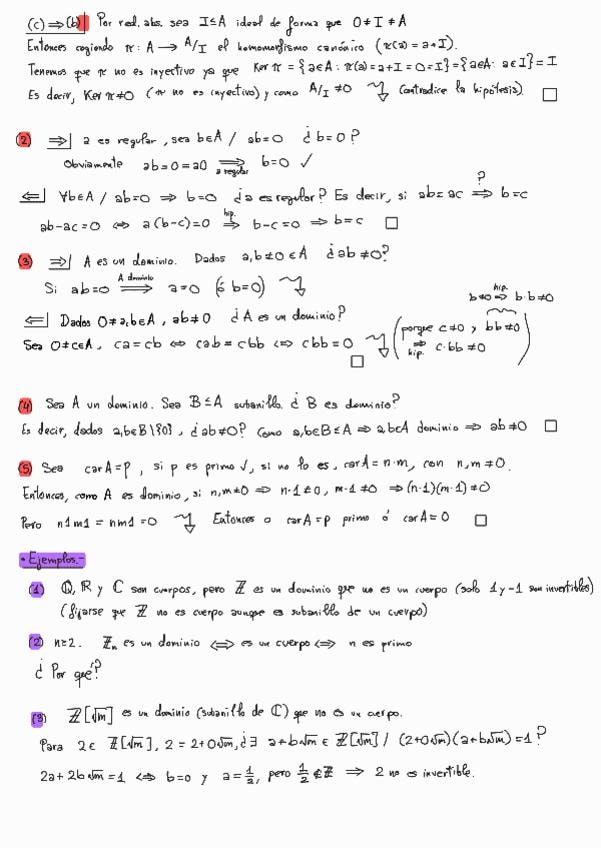 (c) ⇒ (b) Por red. abs. sea I ≤ A ideal de forma que 0 ≠ I ≠ A
Entonces cogiendo π: A → A/I el homomorfismo canónico (π(a) = a+I).
Tenemos que π no es inyectivo ya que Ker π = {a∈A: π(a) = a+I = 0+I} = {a∈A: a∈I} = I
Es decir, Ker π ≠ 0 (π no es inyectivo) y como A/I ≠ 0 ↯ (contradice la hipótesis) □
(2) ⇒| a es regular, sea b∈A / ab=0 ¿b=0?
Obviamente ab=0=a0 ⇒ b=0 ✓
a regular
⇐| ∀b∈A / ab=0 ⇒ b=0 ¿a es regular? Es decir, si ab=ac ⇒? b=c
ab-ac=0 ⇔ a(b-c)=0 ⇒ hip. b-c=0 ⇒ b=c □
(3) ⇒| A es un dominio. Dados a,b≠0 ∈ A ¿ab≠0?
Si ab=0 ⇒ A dominio a=0 (ó b=0) ↯
b≠0 ⇒ hip. b·b≠0
⇐| Dados 0≠a,b∈A, ab≠0 ¿A es un dominio?
Sea 0≠c∈A, ca=cb ⇔ cab=cbb ⇔ cbb=0 ↯ (porque c≠0 y bb≠0 ⇒ hip. c·bb≠0)
□
(4) Sea A un dominio. Sea B ≤ A subanillo. ¿B es dominio?
Es decir, dados a,b∈B\{0}, ¿ab≠0? Como a,b∈B≤A ⇒ a,b∈A dominio ⇒ ab≠0 □
(5) Sea carA=p, si p es primo ✓, si no lo es, carA=n·m, con n,m≠0.
Entonces, como A es dominio, si n,m≠0 ⇒ n·1≠0, m·1≠0 ⇒ (n·1)(m·1)≠0
Pero n1m1=nm1=0 ↯ Entonces o carA=p primo ó carA=0 □
• Ejemplos.-
(1) ℚ, ℝ y ℂ son cuerpos, pero ℤ es un dominio que no es un cuerpo (solo 1 y -1 son invertibles)
(fijarse que ℤ no es cuerpo aunque es subanillo de un cuerpo)
(2) n≥2. ℤₙ es un dominio ⇔ es un cuerpo ⇔ n es primo
¿Por qué?
(3) ℤ[√m] es un dominio (subanillo de ℂ) que no es un cuerpo.
Para 2∈ ℤ[√m], 2=2+0√m, ¿∃ a+b√m ∈ ℤ[√m] / (2+0√m)(a+b√m)=1?
2a+2b√m=1 ⇔ b=0 y a=1/2, pero 1/2∉ℤ ⇒ 2 no es invertible.